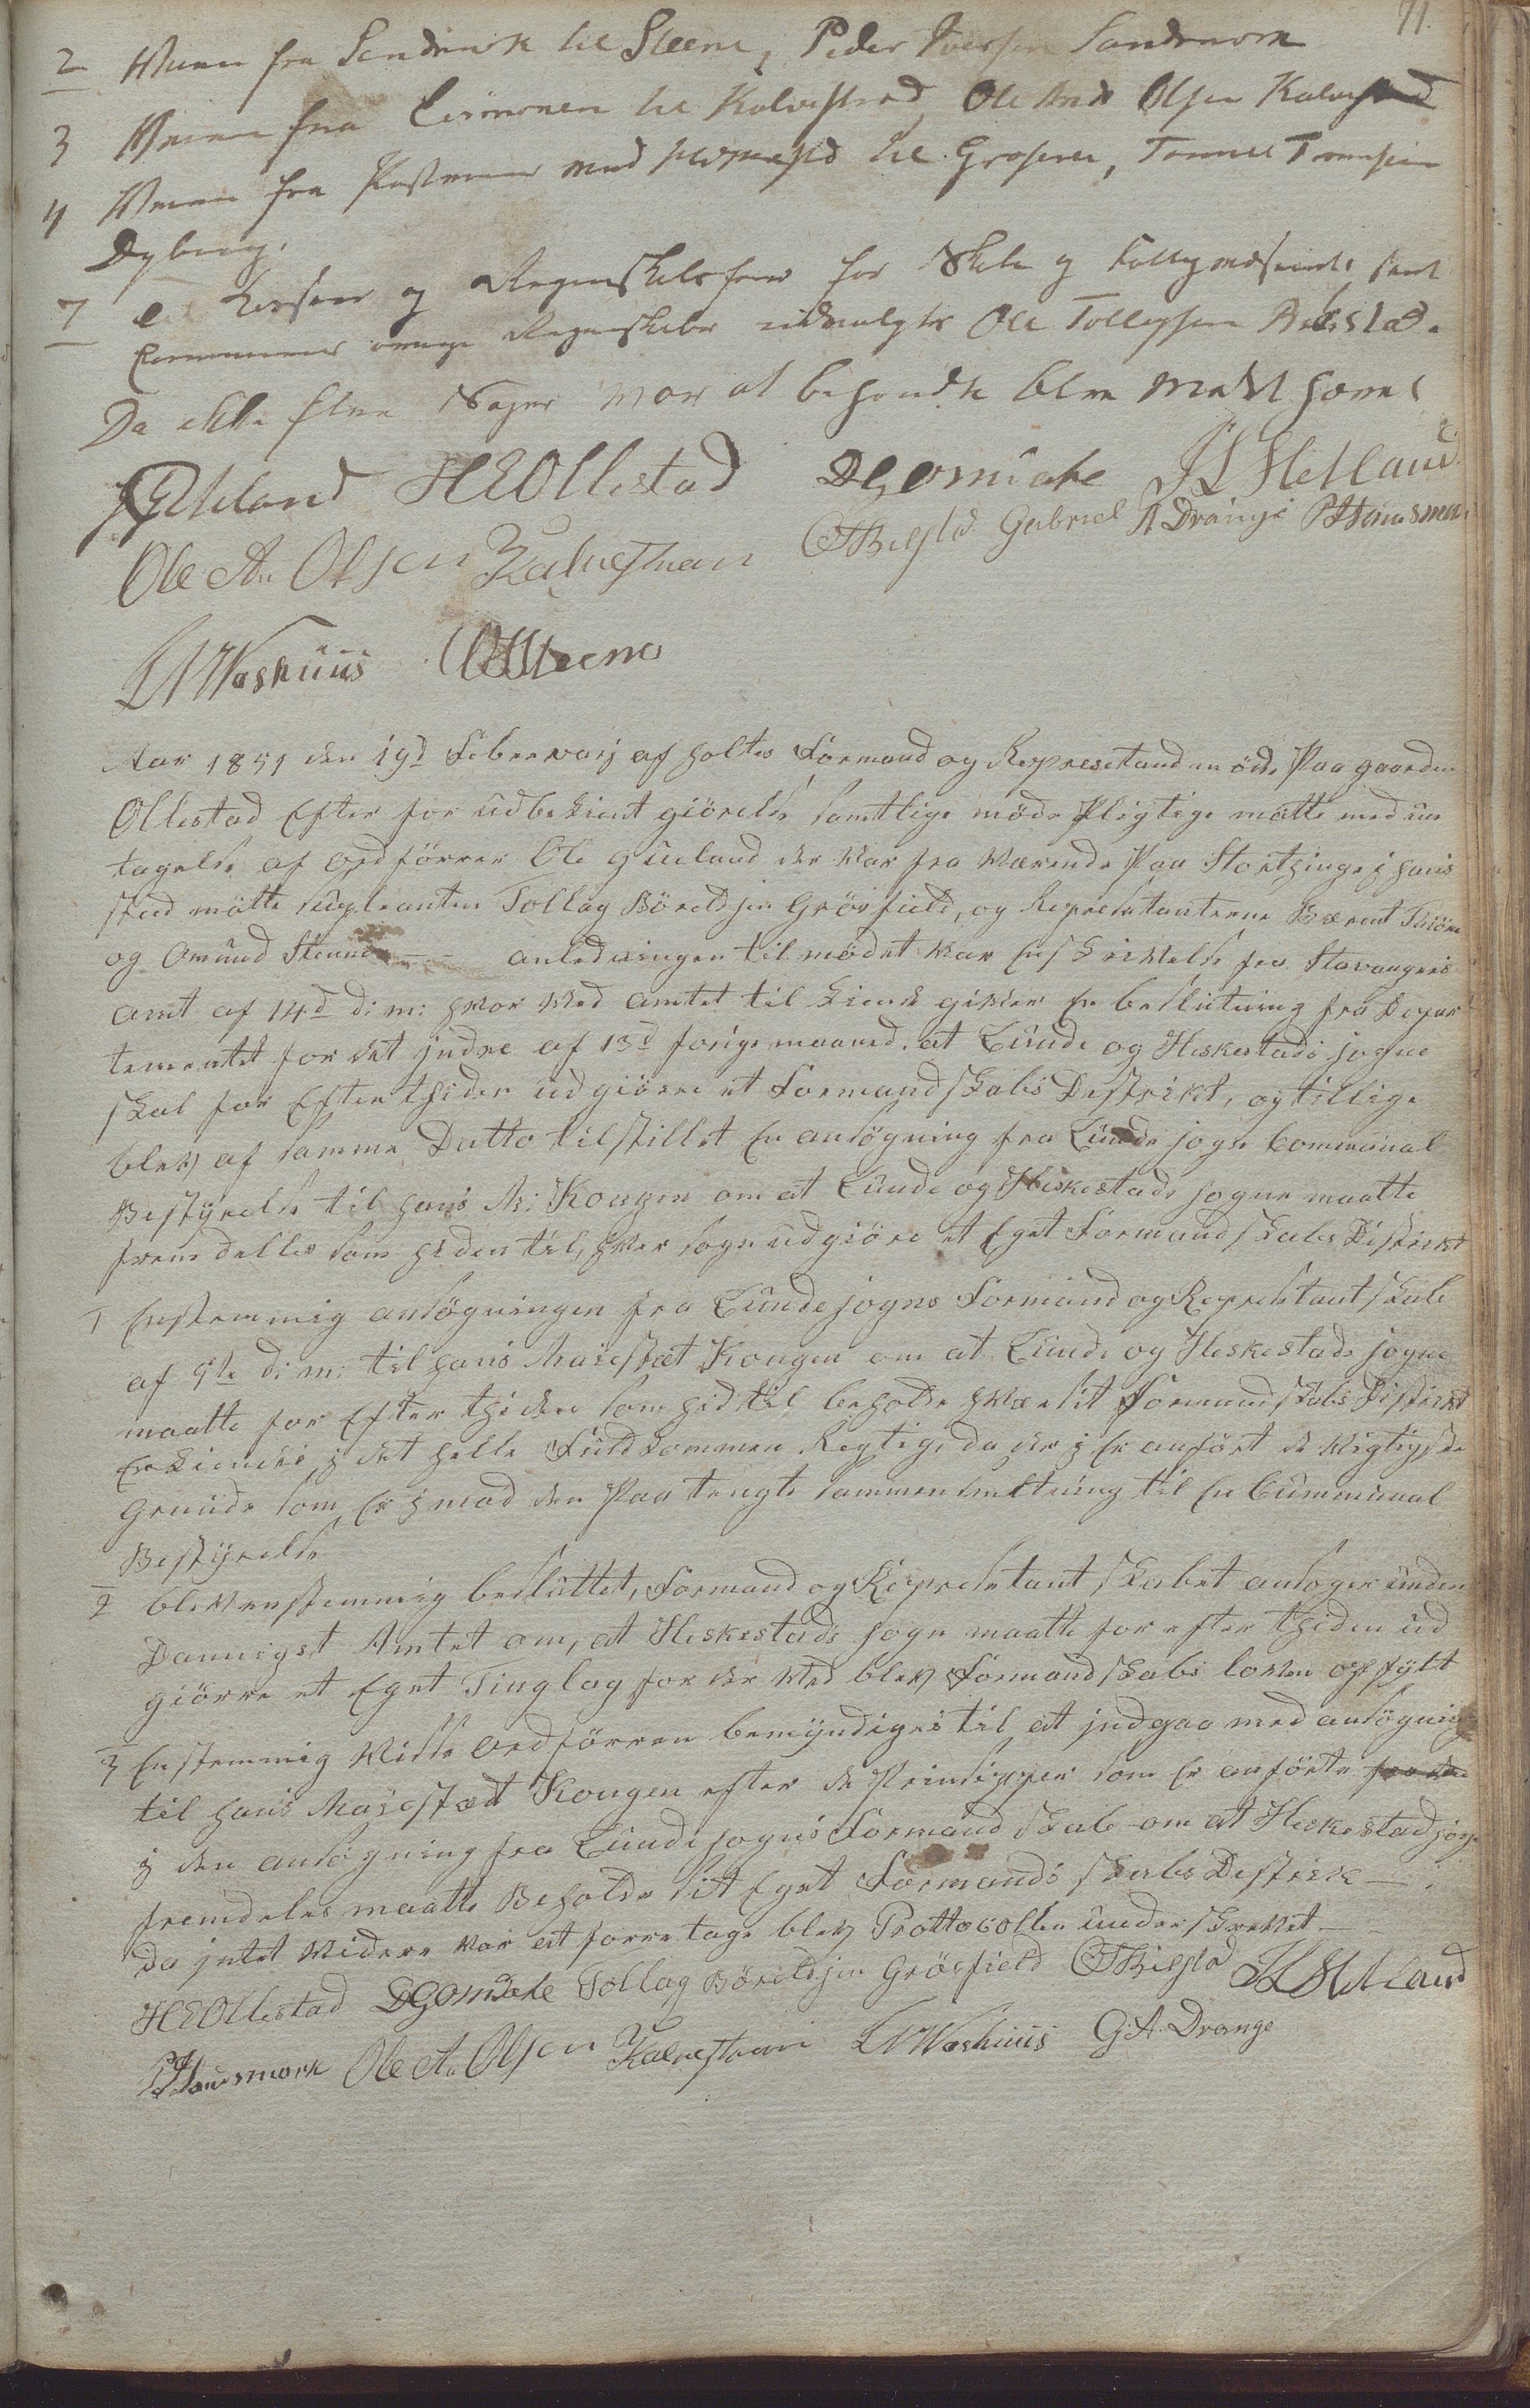 71.
2 Veien fra Sandvik til Steene, Peder Iversen Sandsmark
3 Veien fra til Kalvestrad, Ole And Olsen Kalvestrad
4 Veien fra Postveien ved til Grøsene, Tønnes Tønnesen
Dybing.
7 Til Kasser og Regnskabsfører for Skole og samt
Communens øvrige Regnskaber udvalgtes Ole Tollegsen Bilestad.
Da ikke flere Sager var at behandle blev Mødet hævet
Ueland HEOllestad DGomdahl JLHetland
Ole An Olsen Kalvestran OTBilsta Gabriel A Drange PISandsmar
LNWashuus OASteene
Aar 1851 den 19d Febervarj af holtes Formand og Represetand möde Paa gaarden
Ollestad Efter for udbekient giörelse samtlige möde Pligtige mötte med un
tagelse af ordförrer Ole gueland der var fra Værende Paa Storthinge i hans
sted mötte supleanten Tollag Böreldsen Grösfield, og Represetanterne Berent
og Omund Steene -- anledningen til mödet Var En Skrivelse fra Stavangers
amt af 14d d: m: hvor Ved amtet til Kiende giver En beslutning fra Depar
tementet for det jndre af 13d forige maaned. at Lunde og Heskestads sogne
skal for Efterthiden udgiörre et Formandskabs Destrikt, og tillige
blev af samme Datto tilstillet En ansögning fra Lunde sogns Communal
Bestyrelse til hans M: Kongen om at Lunde og Heskestads sogne maatte
fremdelles som hiden til, hver sogn udgiöre et Eget Formandskabs Distrikt
1 Enstemmig ansögningen fra Lunde sogns Formand og Represetantskab
af 9de d: m: til hans Maiestæt Kongen om at Lunde og Heskestads sogne
maatte for Efterthiden som hid til beholde hver sit Formandskabs Distrikt
Erkiendes i det helle Fuldkommen Regtige da der i Er anfört de Vigtigste
Grunde som Er j mod den Paatengte sammensmeltning til En Cummunal
Bestyrelse
2 blev Enstemmig besluttet, Formand og Represetantskabet ansöger under
Dannigst Amtet om, at Heskestads sogn maatte for efterthiden ud
giörre et Eget Tinglag for der Ved blev Formandskabs loven opfylt
3 Enstemmig Ordförren bemyndiges til at jndgaa med ansögning
til hans Maiestæt Kongen efter de Prinsipper som Er anförte
i den ansögning fra Lunde sogns Formandskab om at Heskestad sogn
fremdeles maatte Beholde sit Eget Formandskabs Destrik --
da jntet Videre var at forretage blev Prottocollen underskrevet
HEOllestad DGomdahl Tollag Böreldsen Grösfield OTBilsta JLHetland
PISandsmark Ole An Olsen Kalvestran LNWashuus G.A. Drange